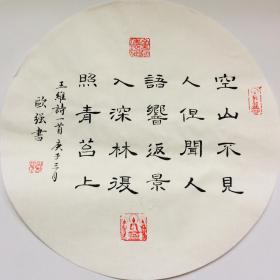 空山不見
人但聞人
語響返景
入深林復
照青苔上
王維詩一首庚子三月
歐強書